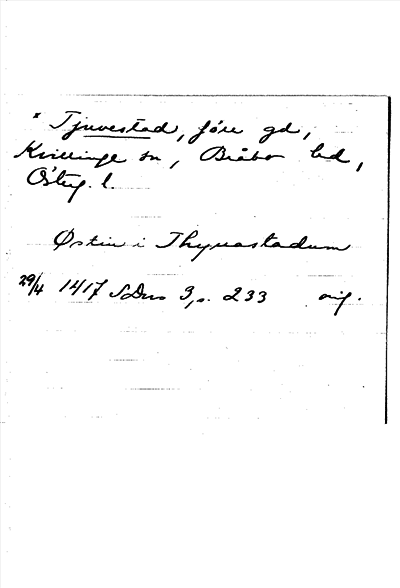 * Tjuvestad, förr gd,
Kvillinge sn, Bråbo hd,
Östug. l.
Østin i Thyuastadum
29/4 1417 SDns 3, s. 233 orig.